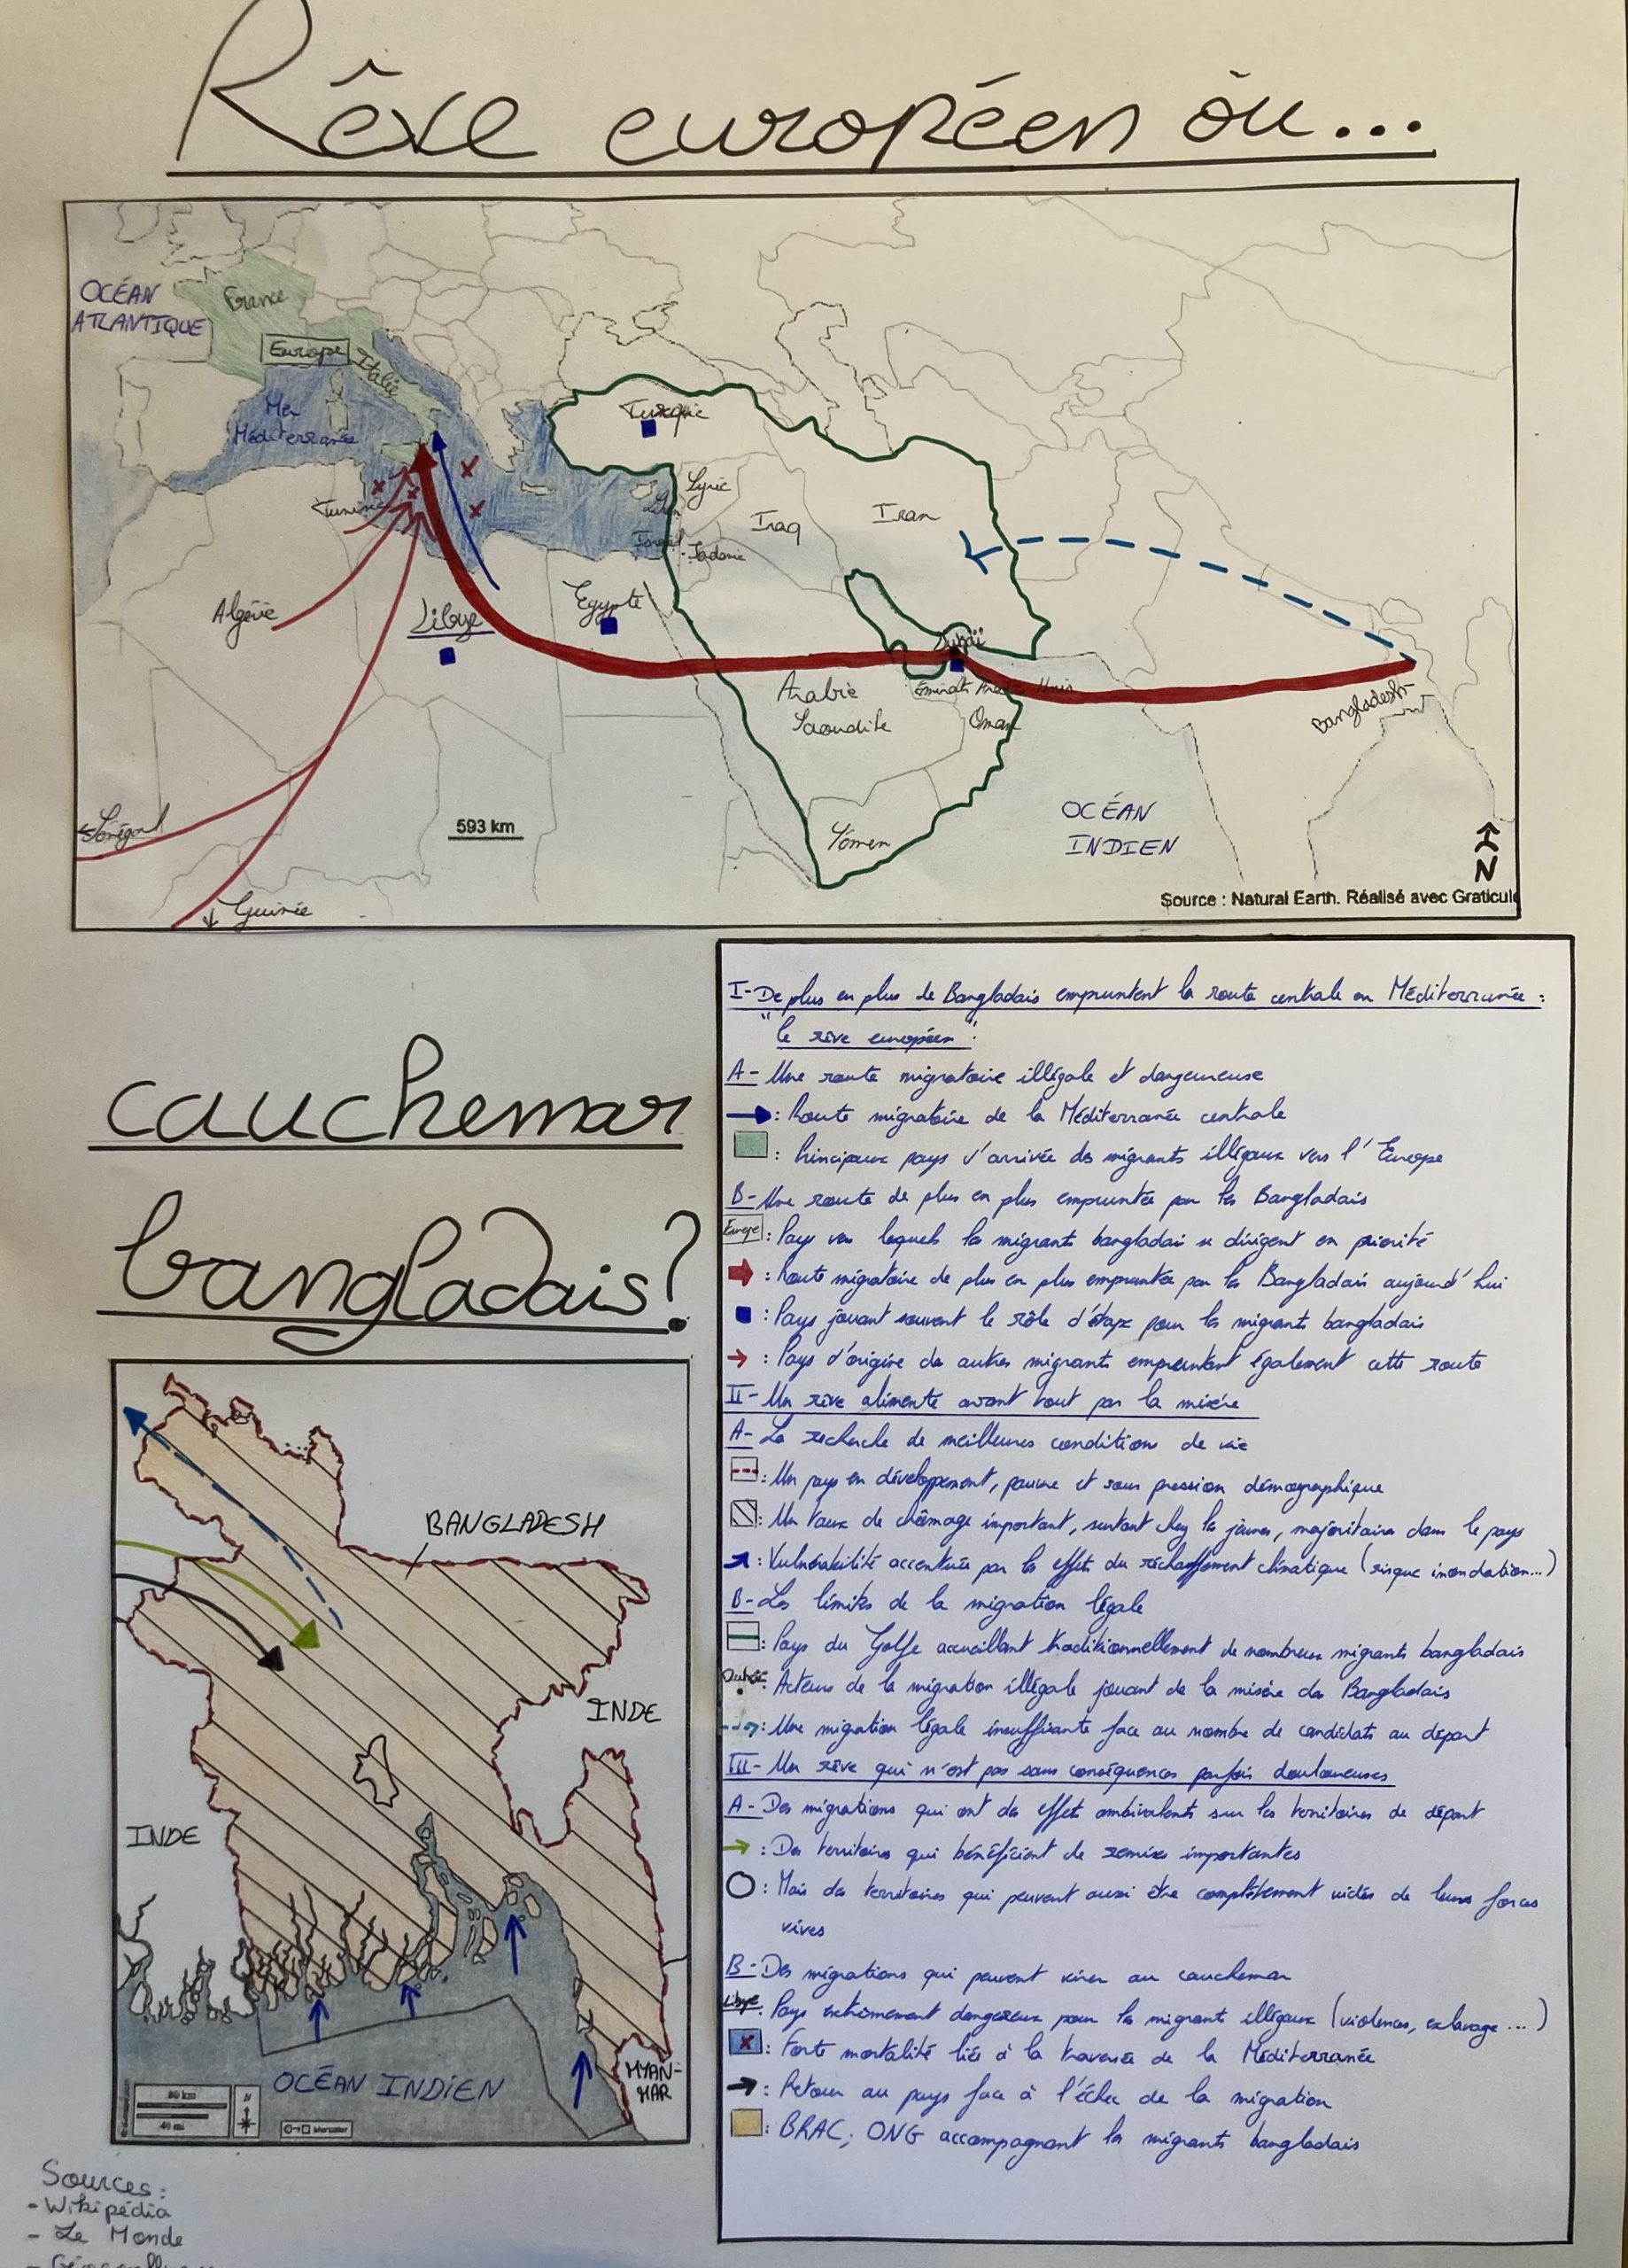 Rêve européen où...
OCÉAN
ATLANTIQUE
France
Europe
Italie
Mer
Méditerranée
Turquie
Syrie
Liban
Iraq
Iran
Israël
Jordanie
Tunisie
Algérie
Libye
Egypte
Dubaï
Arabie
Saoudite
Émirats Arabes Unis
Oman
Bangladesh
Sénégal
593 km
Yémen
OCÉAN
INDIEN
N
Guinée
Source : Natural Earth. Réalisé avec Graticule
cauchemar
bangladais?
I- De plus en plus de Bangladais empruntent la route centrale en Méditerranée :
"le rêve européen".
A- Une route migratoire illégale et dangeureuse
: Route migratoire de la Méditerranée centrale
: Principaux pays d'arrivée des migrants illégaux vers l'Europe
B- Une route de plus en plus empruntée par les Bangladais
Europe : Pays vers lequels les migrants bangladai se dirigent en priorité
: Route migratoire de plus en plus empruntée par les Bangladais aujourd'hui
: Pays jouant souvent le rôle d'étape pour les migrants bangladais
: Pays d'origine des autres migrants empruntant également cette route
II- Un rêve alimenté avant tout par la misère
A- La recherche de meilleures conditions de vie
: Un pays en développement, pauvre et sous pression démographique
: Un taux de chômage important, surtout chez les jeunes, majoritaires dans le pays
: Vulnérabilité accentuée par les effets du réchauffement climatique (risque inondation...)
B- Les limites de la migration légale
: Pays du Golfe accueillant traditionnellement de nombreux migrants bangladais
Dubaï : Acteurs de la migration illégale jouant de la misère des Bangladais
: Une migration légale insuffisante face au nombre de candidats au départ
III- Un rêve qui n'est pas sans conséquences parfois douloureuses
A- Des migrations qui ont des effets ambivalents sur les territoires de départ
: Des territoires qui bénéficient de remises importantes
: Mais des territoires qui peuvent aussi être complètement vidés de leurs forces
vives
B- Des migrations qui peuvent virer au cauchemar
Libye : Pays extrêmement dangereux pour les migrants illégaux (violences, esclavage...)
: Forte mortalité liée à la traversée de la Méditerranée
: Retour au pays face à l'échec de la migration
: BRAC ; ONG accompagnant les migrants bangladais
BANGLADESH
INDE
INDE
OCÉAN INDIEN
MYAN-
MAR
80 km
40 mi
N
Mercator
Sources :
- Wikipédia
- Le Monde